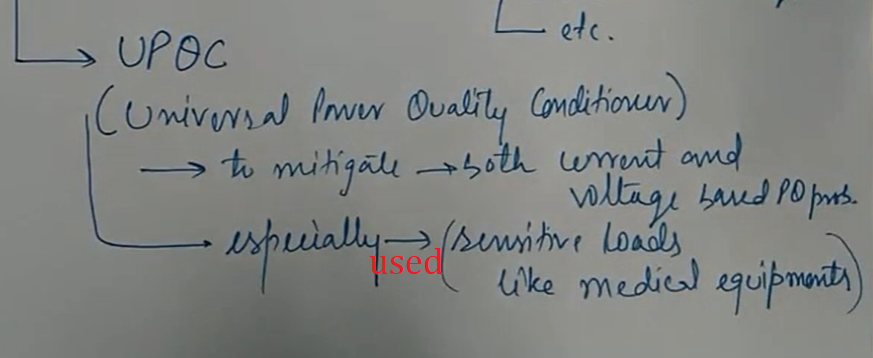 etc.
UPQC
(Universal Power Quality Conditioner)
to mitigate → both current and
voltage based PQ probs.
especially → (sensitive loads
used
like medical equipments)